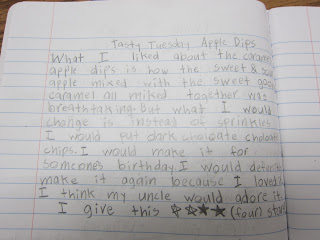 Tasty Tuesday Apple Dips
What I liked about the caramel
apple dips is how the sweet & sour
apple mixed with the sweet
caramel all mixed together was
breathtaking. But what I would
change is instead of sprinkles
I would put dark choloate
chips. I would make it for
someones birthday. I would
make it again because I loved
I think my uncle would adore it
I give this ☆☆★★ (four stars